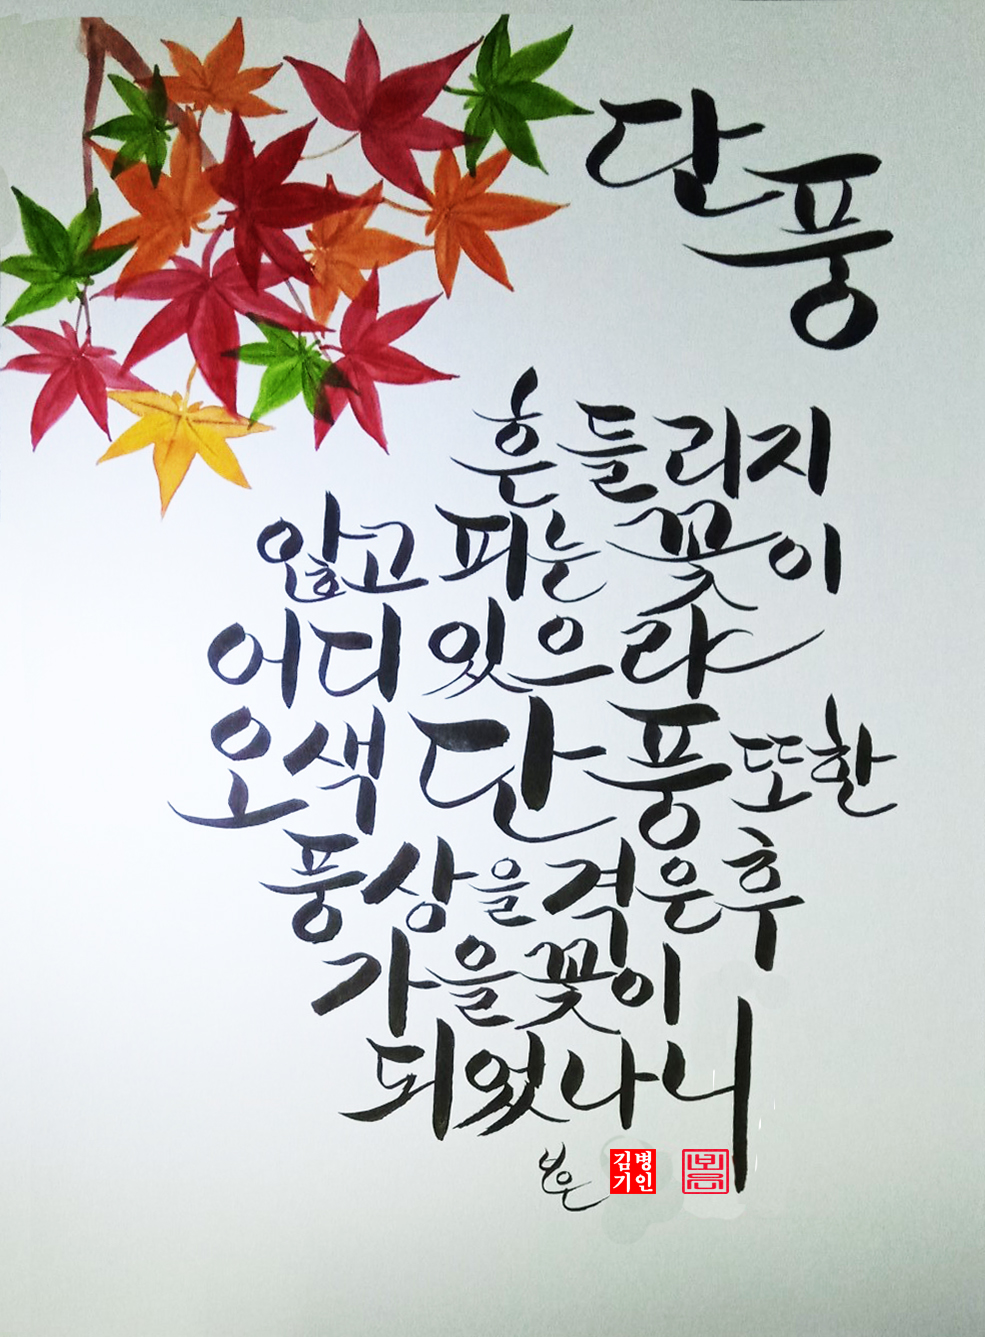 단풍
흔들리지
않고 피는 꽃이
어디 있으랴
오색 단풍 또한
풍상을 겪은 후
가을꽃이
되었나니
보은
김병
기인
보은